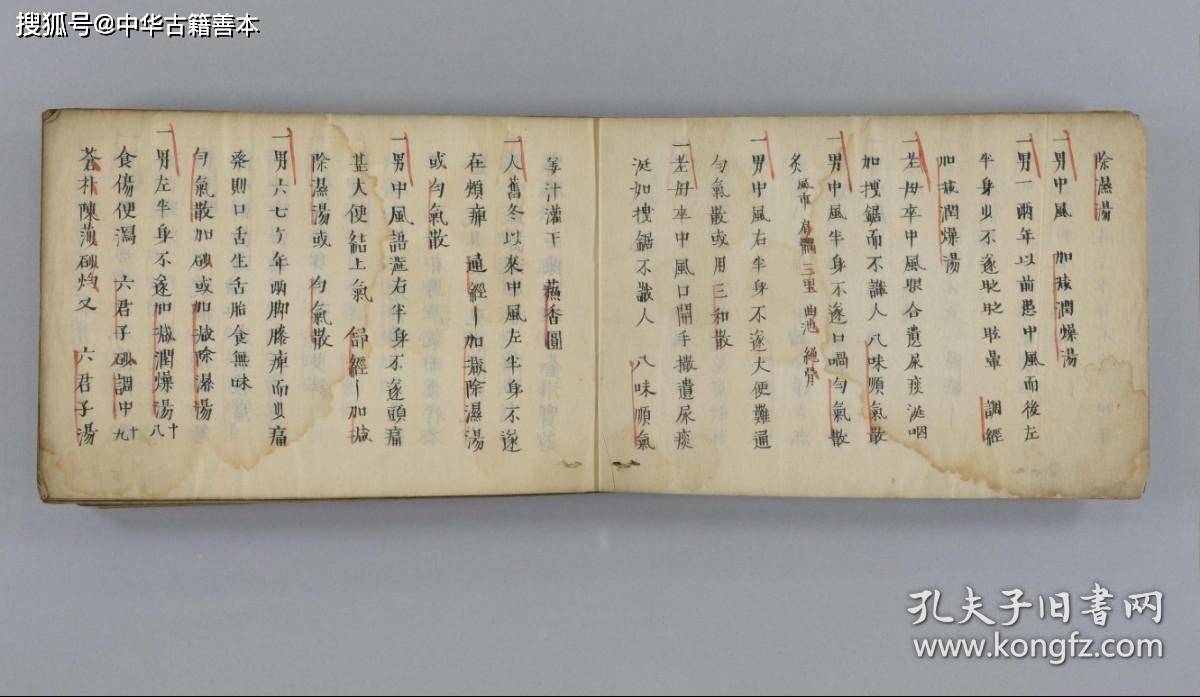 搜狐号@中华古籍善本
除濕湯
一男中風 加減潤燥湯
一男一兩年以前患中風而後左
半身不遂眩暈 調經
加減潤燥湯
一老母卒中風眼合遺尿痰涎咽
如拽鋸而不識人 八味順氣散
一男中風半身不遂口喎勻氣散
灸 風市 肩髃 三里 曲池 絕骨
一男中風右半身不遂大便難通
勻氣散或用三和散
一老母卒中風口開手撒遺尿痰
涎如拽鋸不識人 八味順氣
姜汁灌下 蘇香圓
一人舊冬以來中風左半身不遂
在煩痺 通經ー加減除濕湯
或勻氣散
一男中風語澁右半身不遂頭痛
甚大便結上氣 舒經ー加減
除濕湯或 勻氣散
一男六七ケ年兩脚膝痺而痛
發則口舌生舌胎食無味
勻氣散加砂或加減除濕湯
一男左半身不遂加減潤燥湯十八
食傷便瀉 六君子砂調中十九
蒼朴陳 砂 又 六君子湯
孔夫子旧书网
www.kongfz.com